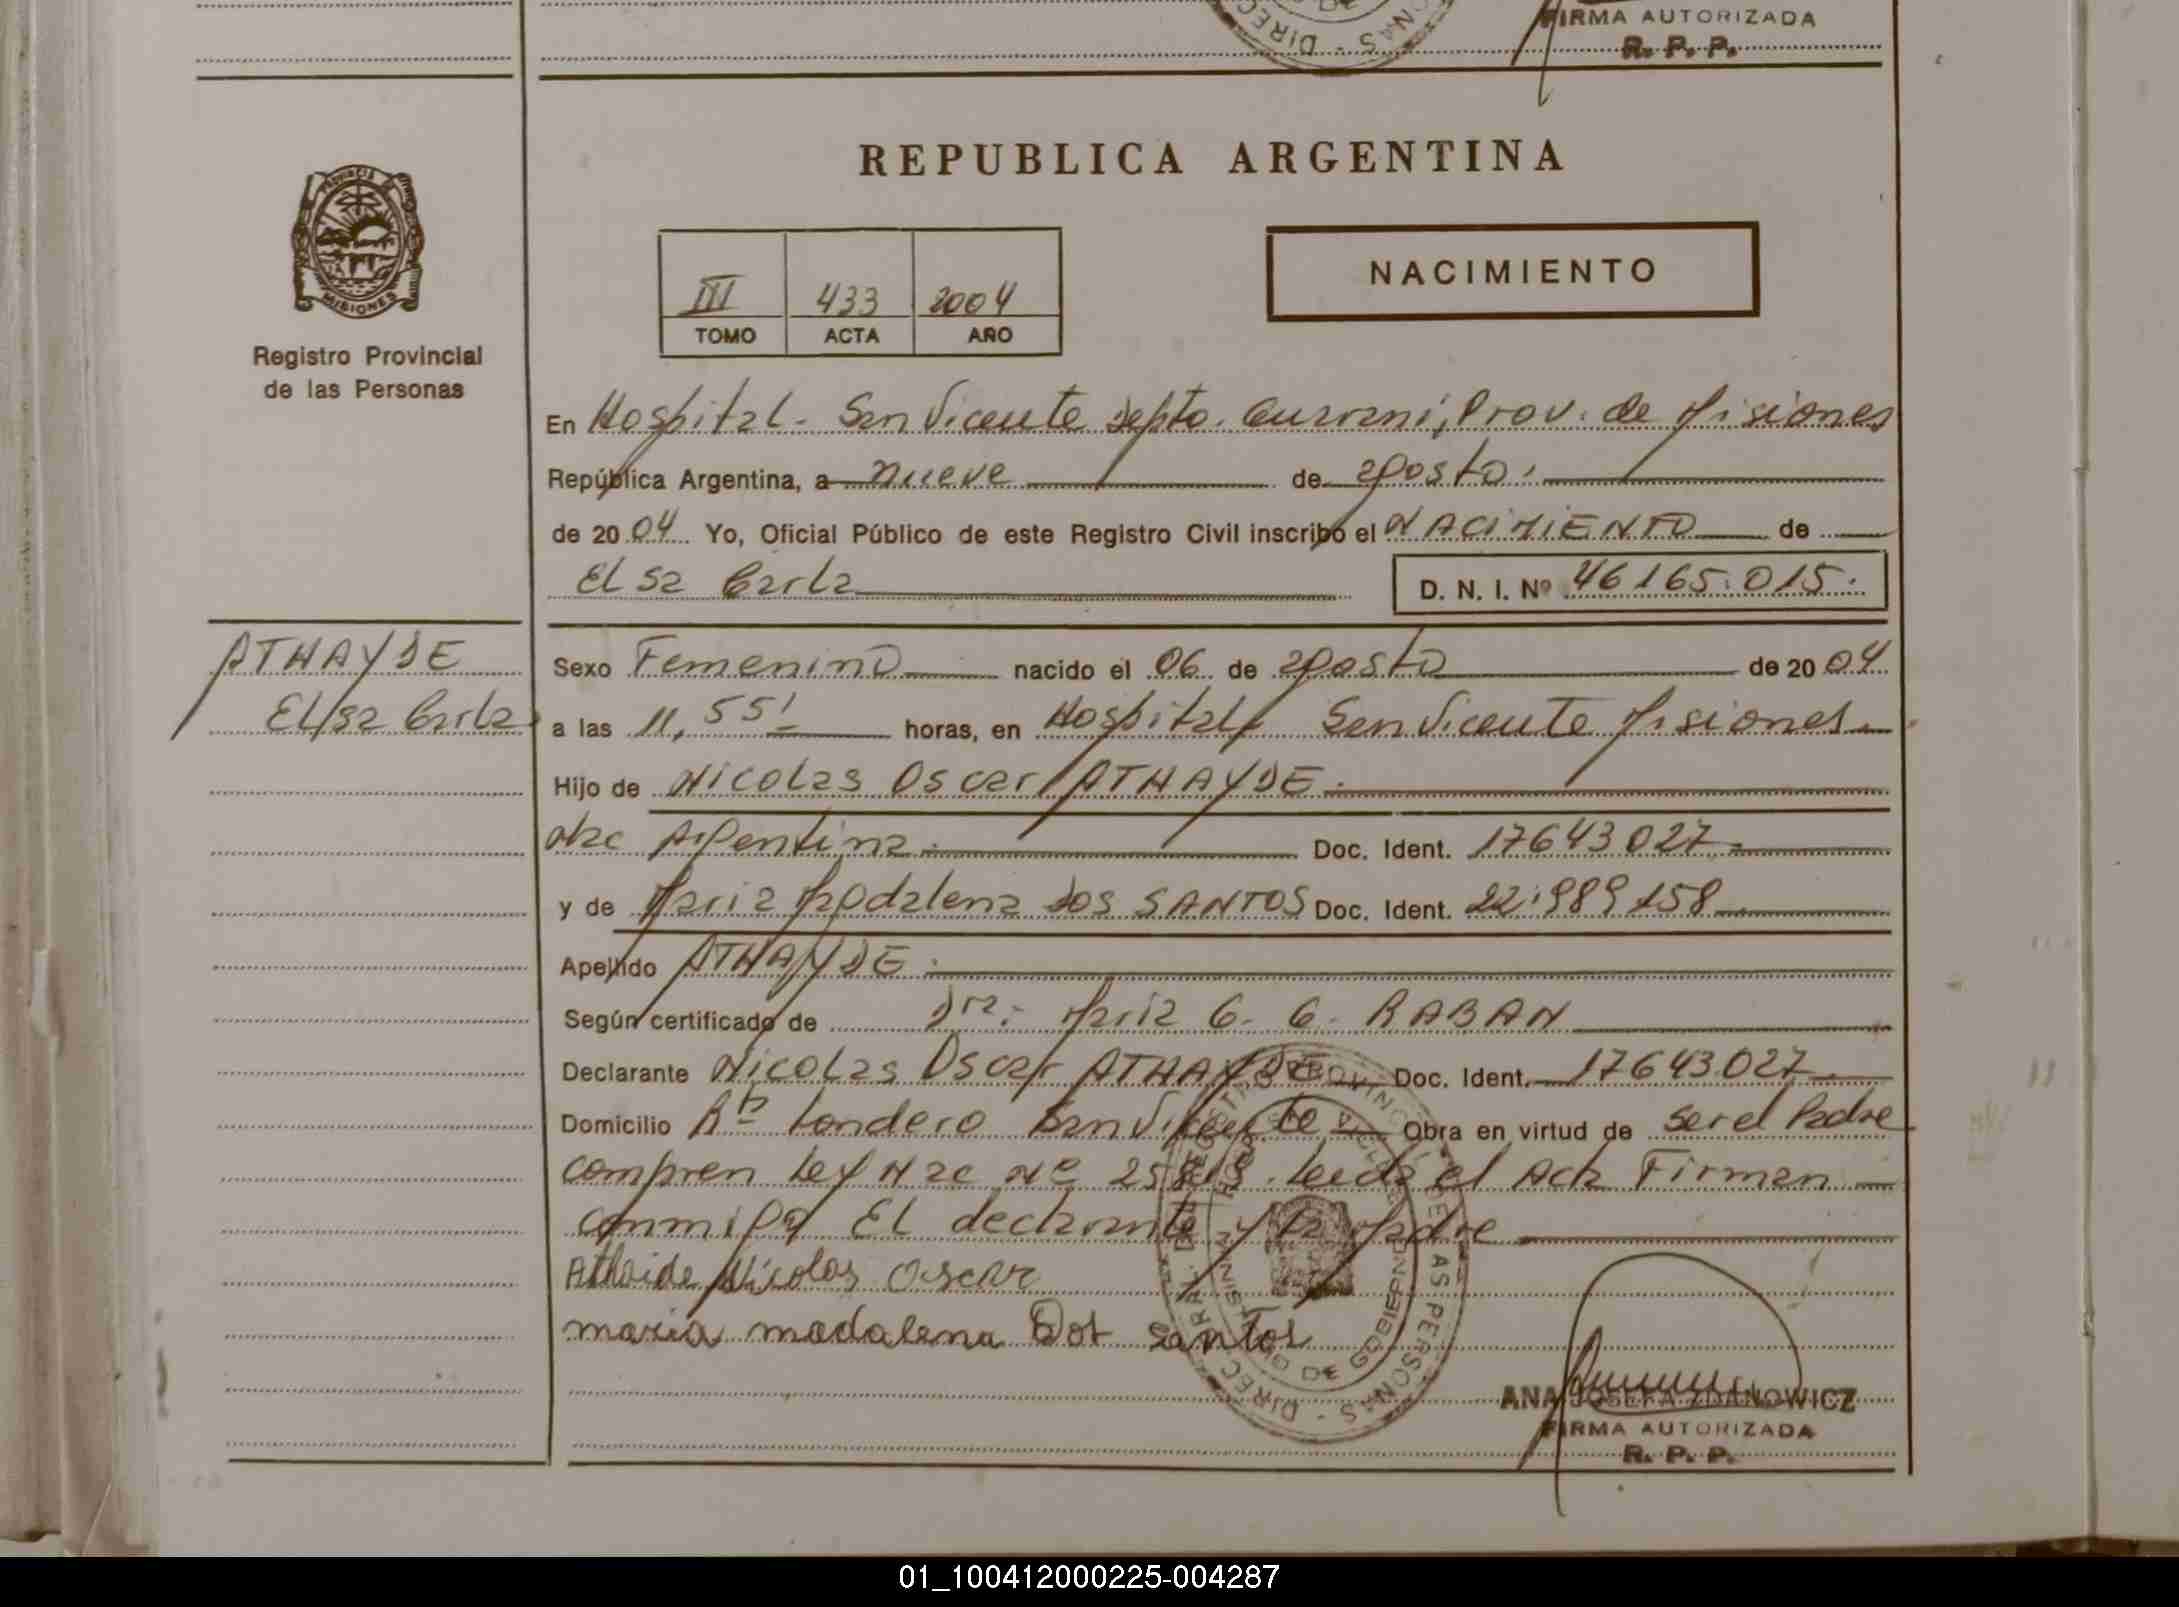 FIRMA AUTORIZADA
R. P. P.
REPUBLICA ARGENTINA
PROVINCIA DE
MISIONES
Registro Provincial
de las Personas
III 433 2004
TOMO ACTA AÑO
NACIMIENTO
En Hospital - San Vicente Depto. Guarani, Prov. de Misiones
República Argentina, a nueve de agosto.
de 2004. Yo, Oficial Público de este Registro Civil inscribo el NACIMIENTO de
Elsa Carla D. N. I. Nº 46165.015.
ATHAYDE
Elsa Carla
Sexo Femenino nacido el 06 de agosto de 2004
a las 11,55' horas, en Hospital San Vicente Misiones
Hijo de Nicolas Oscar ATHAYDE.
Nac Argentina. Doc. Ident. 17643027
y de Maria Magdalena DOS SANTOS Doc. Ident. 22.989158
Apellido ATHAYDE.
Según certificado de Dra. Maria G. G. RABAN
Declarante Nicolas Oscar ATHAYDE Doc. Ident. 17643027
Domicilio Bº Londero San Vicente Obra en virtud de ser el Padre
Compren Ley Nac Nº Leida el Acta Firman
conmigo El declarante y la Madre
Athaide Nicolas Oscar
maria madalena Dos santos
ANA JOSEFA ZDANOWICZ
FIRMA AUTORIZADA
R. P. P.
01_100412000225-004287